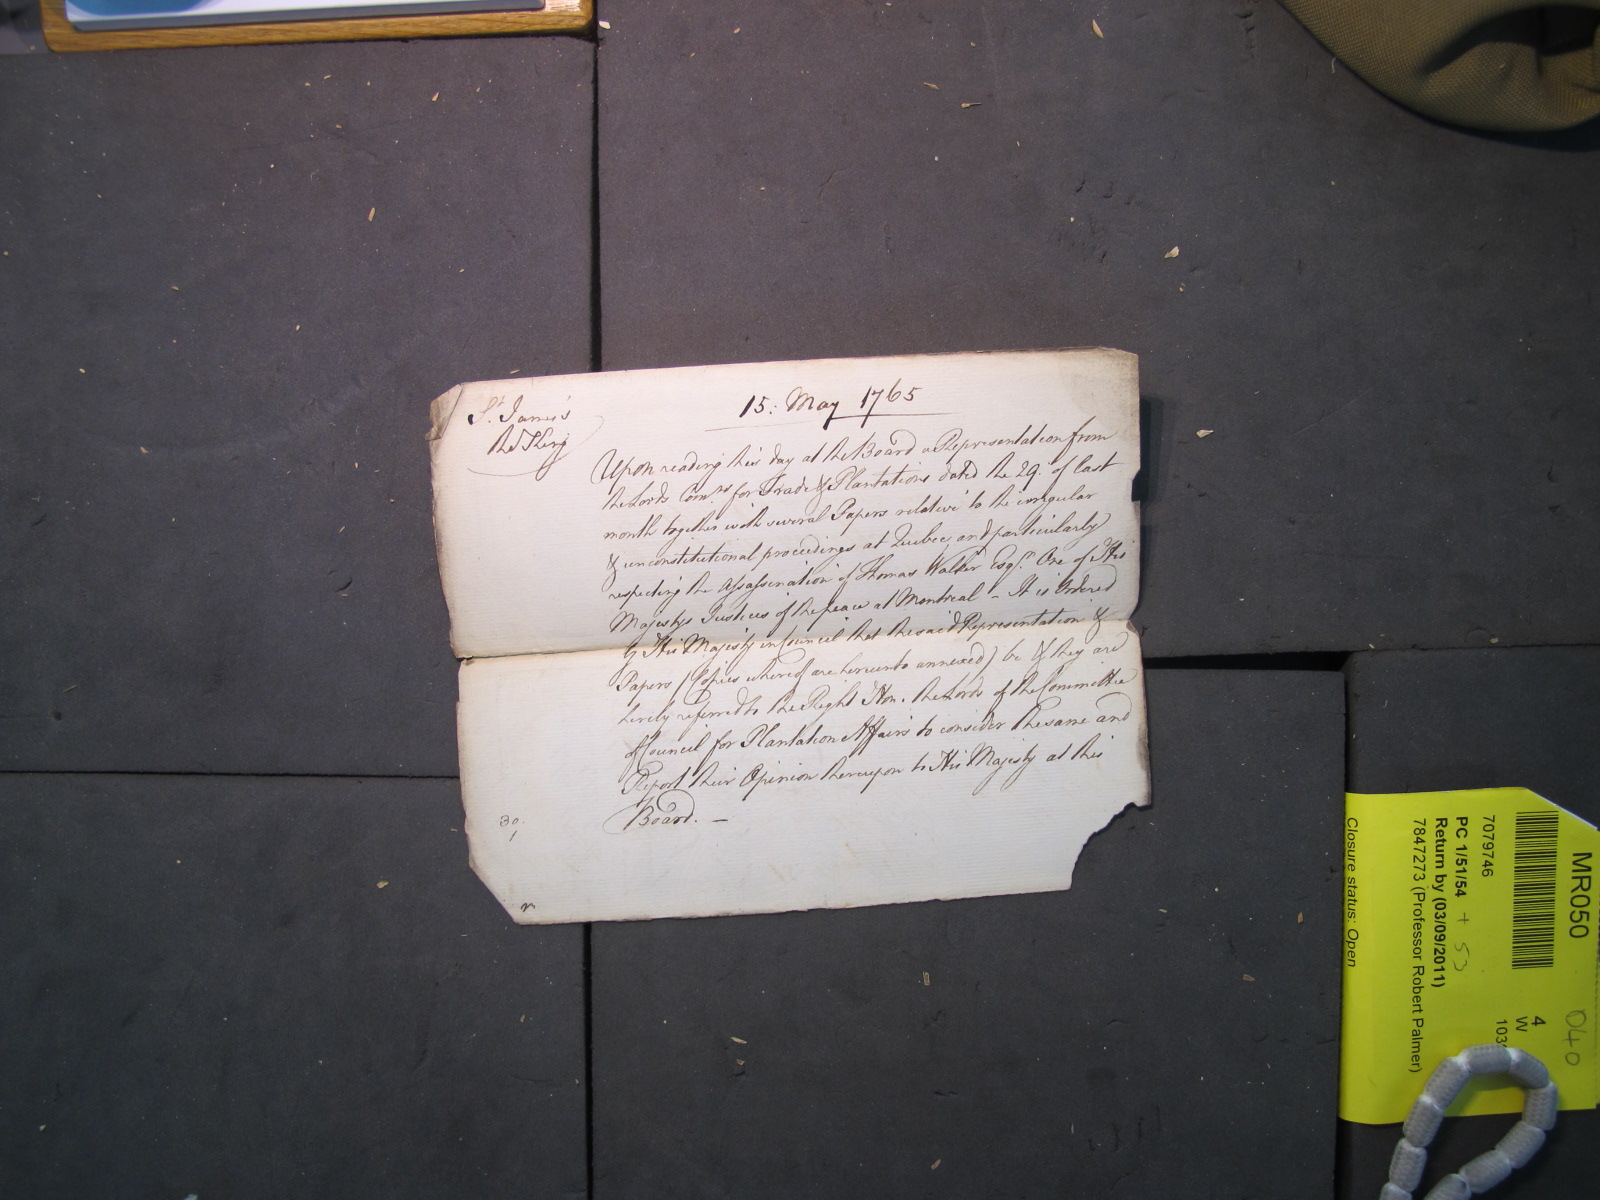 St. James's
the King
15: May 1765
Upon reading this day at the Board a Representation from
the Lords Comrs for Trade & Plantations dated the 29. of last
month together with several Papers relative to the irregular
& unconstitutional proceedings at Quebec, and particularly
respecting the assassination of Thomas Walker Esqr. One of His
Majestys Justices of the peace at Montreal - It is Ordered
by His Majesty in Council that the said Representation &
Papers (Copies whereof are hereunto annexed) be & they are
hereby referred to the Right Hon. the Lords of the Committee
of Council for Plantation Affairs to consider the same and
Report their Opinion thereupon to His Majesty at this
Board. -
30.
1
MR050
7079746
PC 1/51/54 + 53
Return by (03/09/2011)
7847273 (Professor Robert Palmer)
Closure status: Open
040
4
W
103